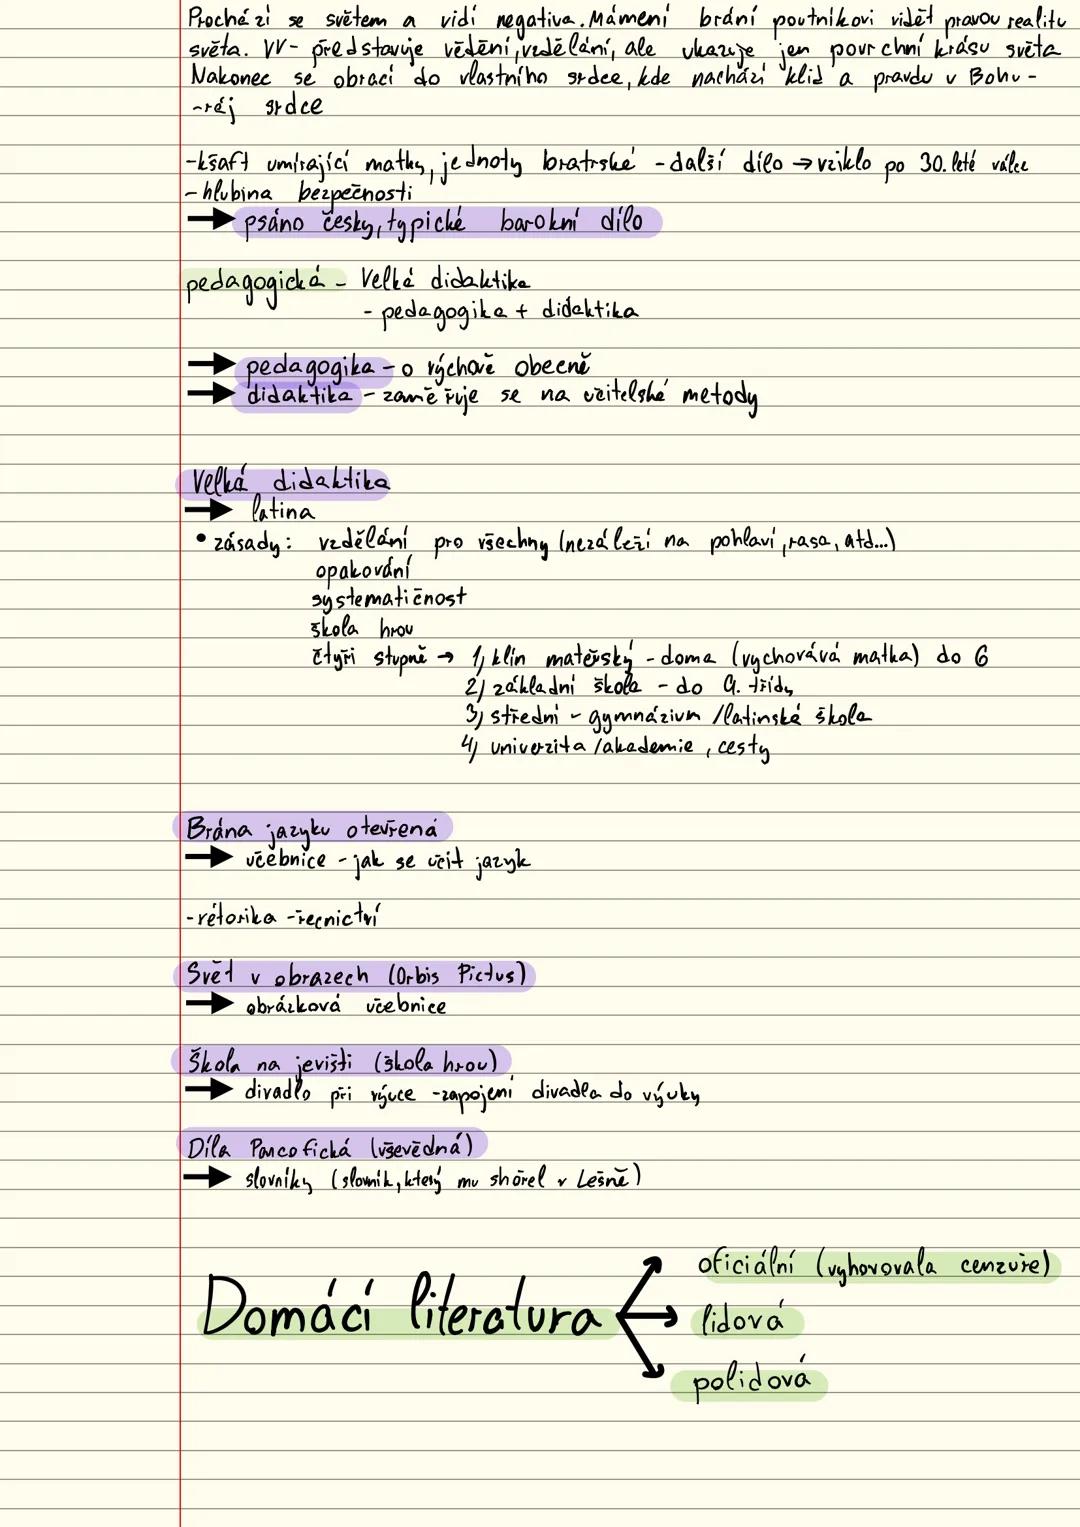 Prochází se světem a vidí negativa. Mámení brání poutníkovi vidět pravou realitu
světa. VV - představuje vědění, vzdělání, ale ukazuje jen povrchní krásu světa
Nakonec se obrací do vlastního srdce, kde nachází klid a pravdu v Bohu -
-ráj srdce
-kšaft umírající matky, jednoty bratrské - další dílo → vziklo po 30. leté válce
- hlubina bezpečnosti
→ psáno česky, typické barokní dílo
pedagogická - Velká didaktika
- pedagogika + didaktika
→ pedagogika - o výchově obecně
→ didaktika - zaměřuje se na učitelské metody
Velká didaktika
→ latina
• zásady: vzdělání pro všechny (nezáleží na pohlaví, rasa, atd...)
opakování
systematičnost
škola hrou
čtyři stupně → 1) klín mateřský - doma (vychovává matka) do 6
2) základní škola - do 9. třídy
3) střední - gymnázium /latinská škola
4) univerzita /akademie, cesty
Brána jazyku otevřená
→ učebnice - jak se učit jazyk
- rétorika - řečnictví
Svět v obrazech (Orbis Pictus)
→ obrázková učebnice
Škola na jevišti (škola hrou)
→ divadlo při výuce - zapojení divadla do výuky
Díla Pancofická (vševědná)
→ slovníky (slovník, který mu shořel v Lešně)
oficiální (vyhovovala cenzuře)
Domácí literatura
lidová
polidová